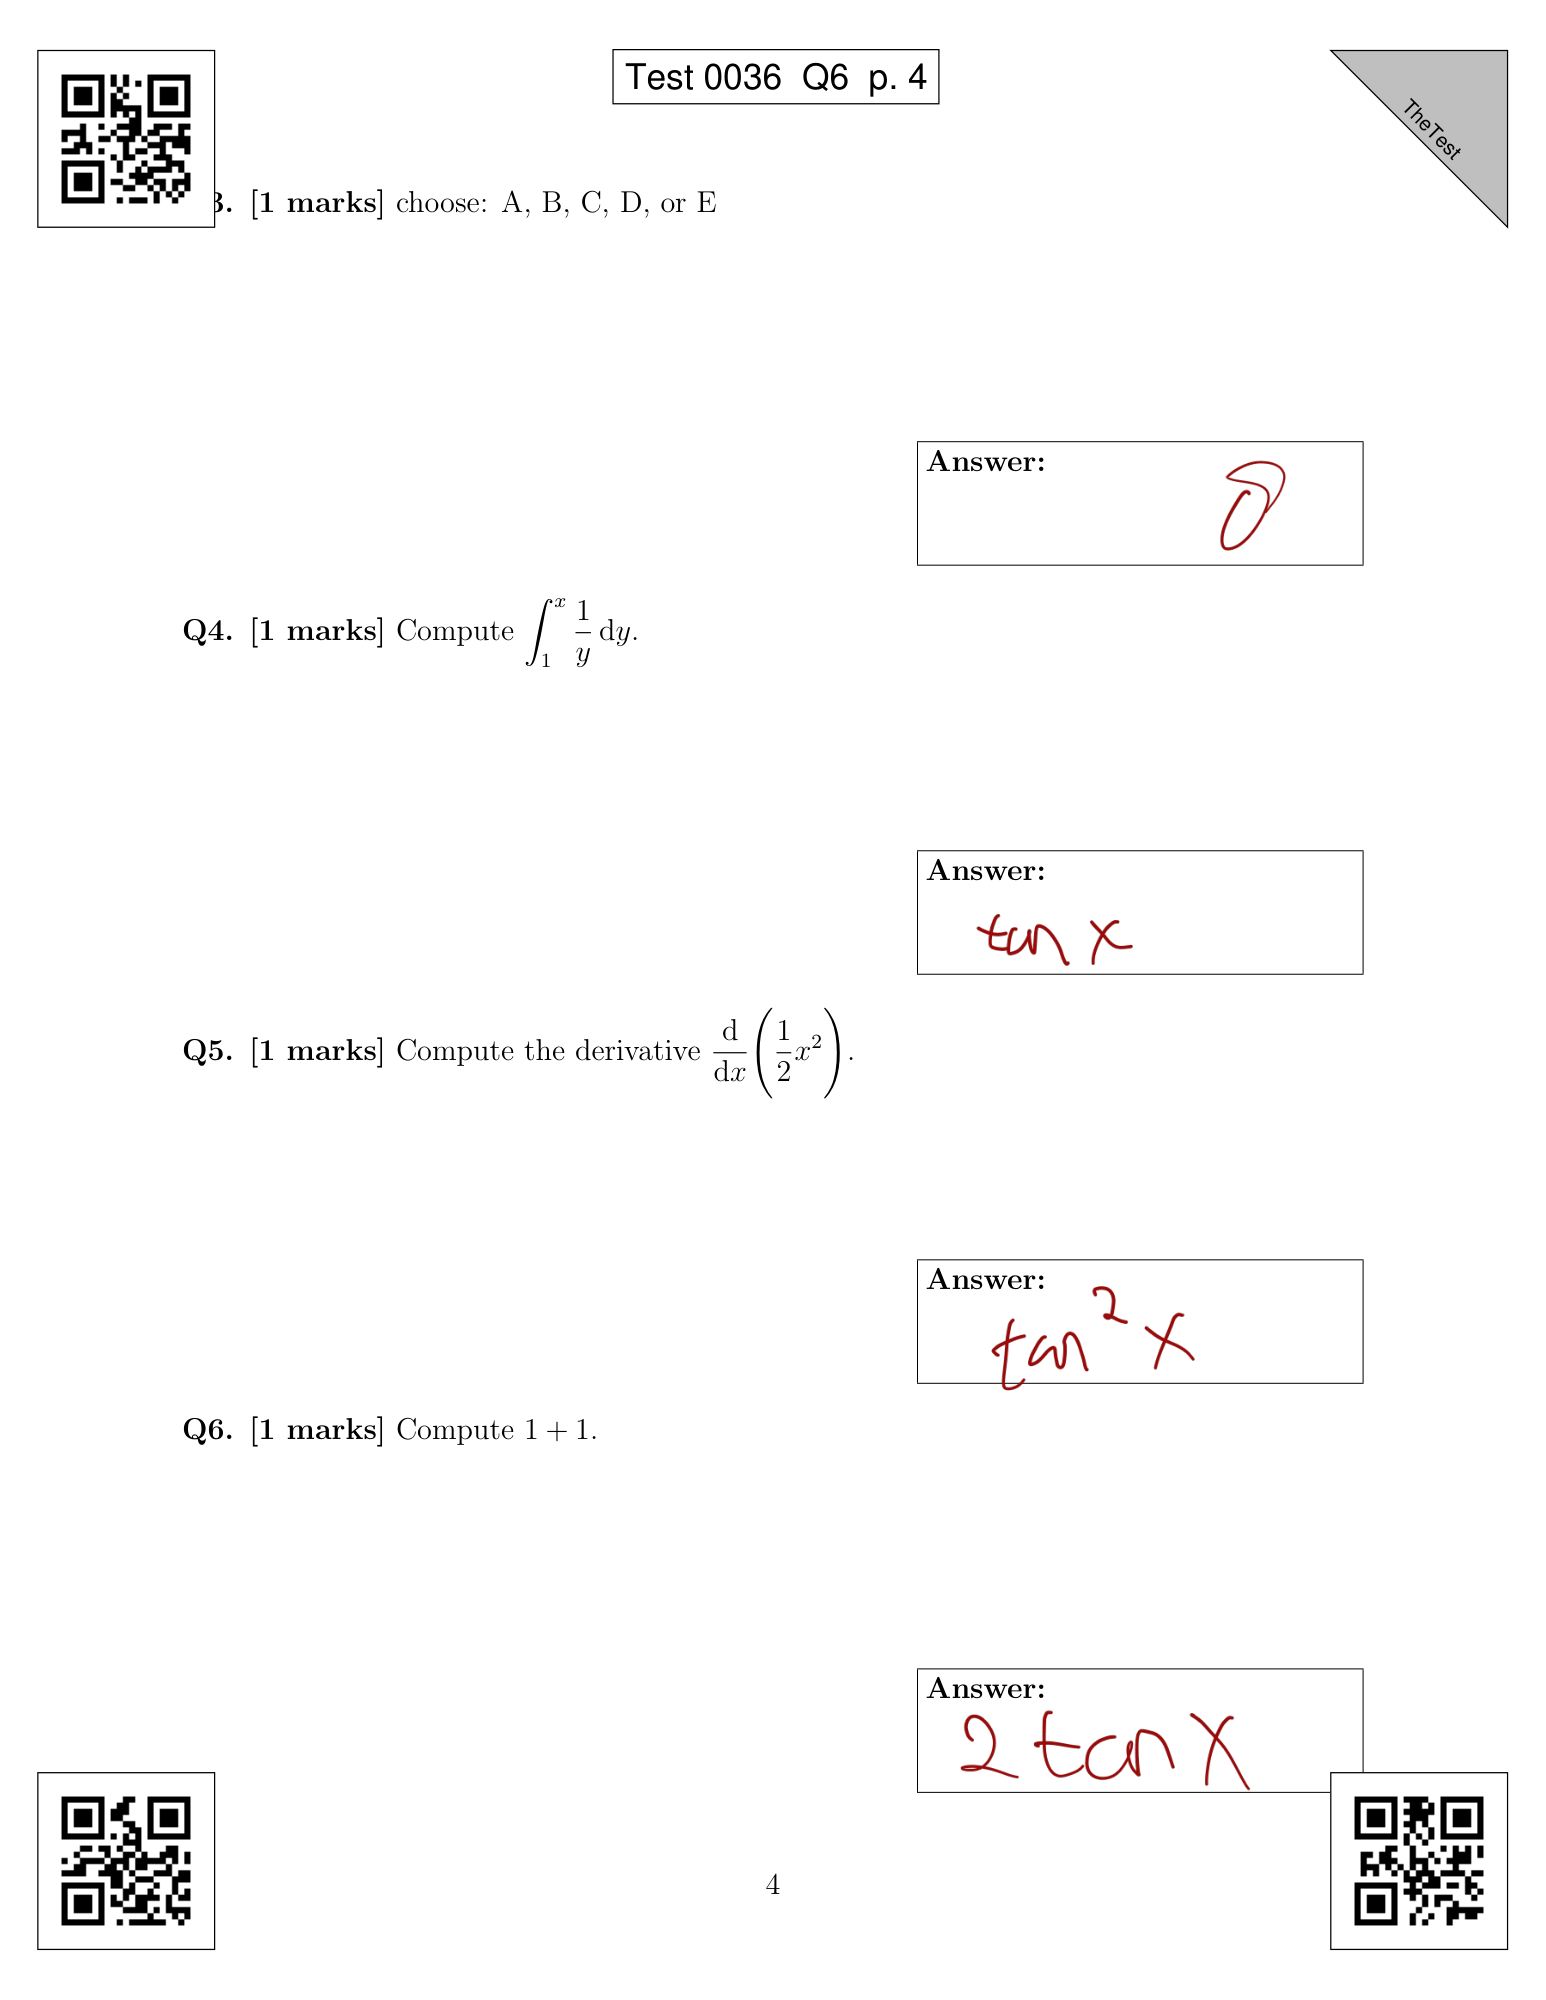 Test 0036 Q6 p. 4
TheTest
3. [1 marks] choose: A, B, C, D, or E
Answer:
Q4. [1 marks] Compute ∫₁ˣ 1/y dy.
Answer:
tan x
Q5. [1 marks] Compute the derivative d/dx(1/2 x²).
Answer:
tan² x
Q6. [1 marks] Compute 1 + 1.
Answer:
2 tan x
4